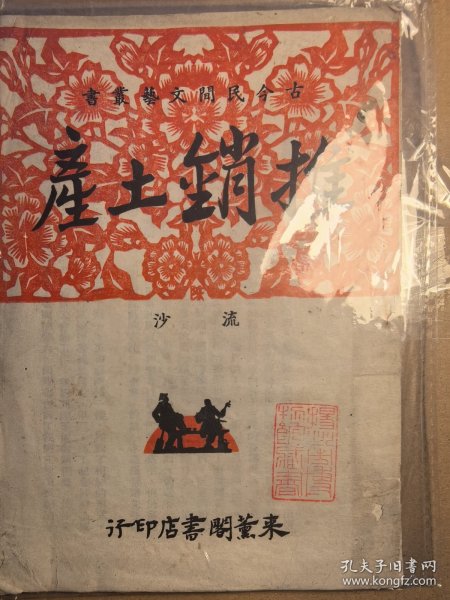 古今民間文藝叢書
推銷土產
流沙
來薰閣書店印行
孔夫子旧书网
www.kongfz.com